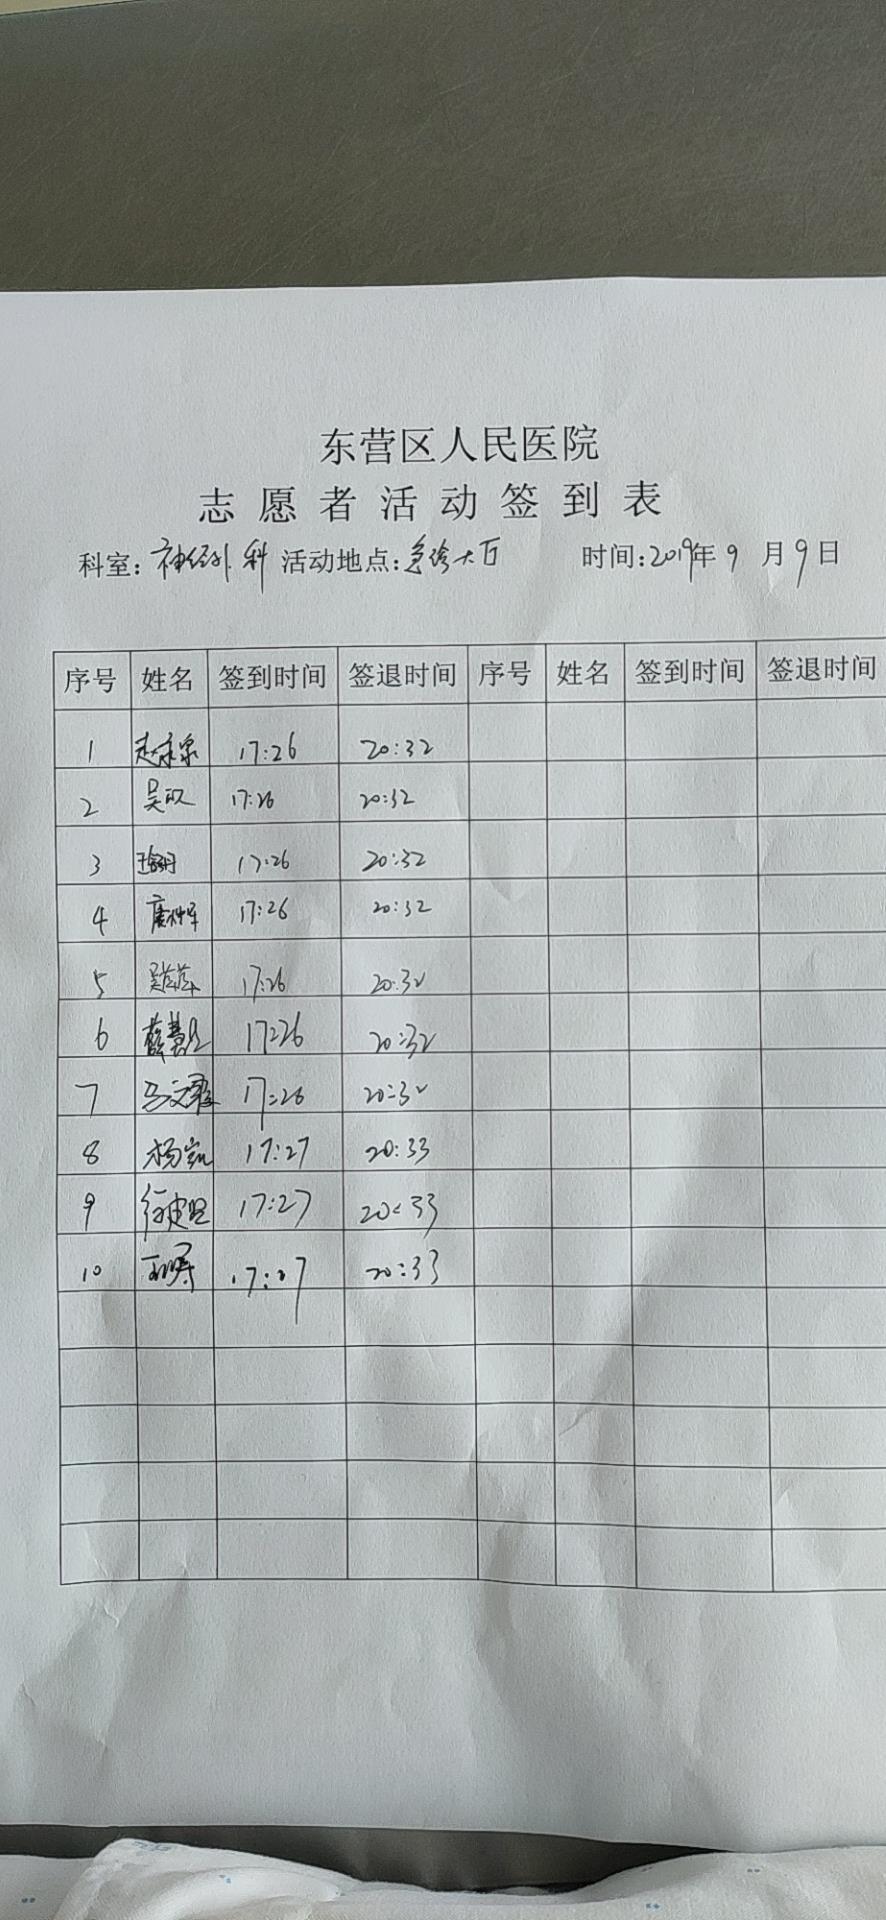 东营区人民医院
志愿者活动签到表
科室:神经外科 活动地点:急诊大厅 时间:2019年9月9日
序号 姓名 签到时间 签退时间 序号 姓名 签到时间 签退时间
1 17:26 20:32
2 17:26 20:32
3 17:26 20:32
4 17:26 20:32
5 17:26 20:32
6 17:26 20:32
7 17:26 20:32
8 杨凯 17:27 20:33
9 17:27 20:33
10 17:27 20:33